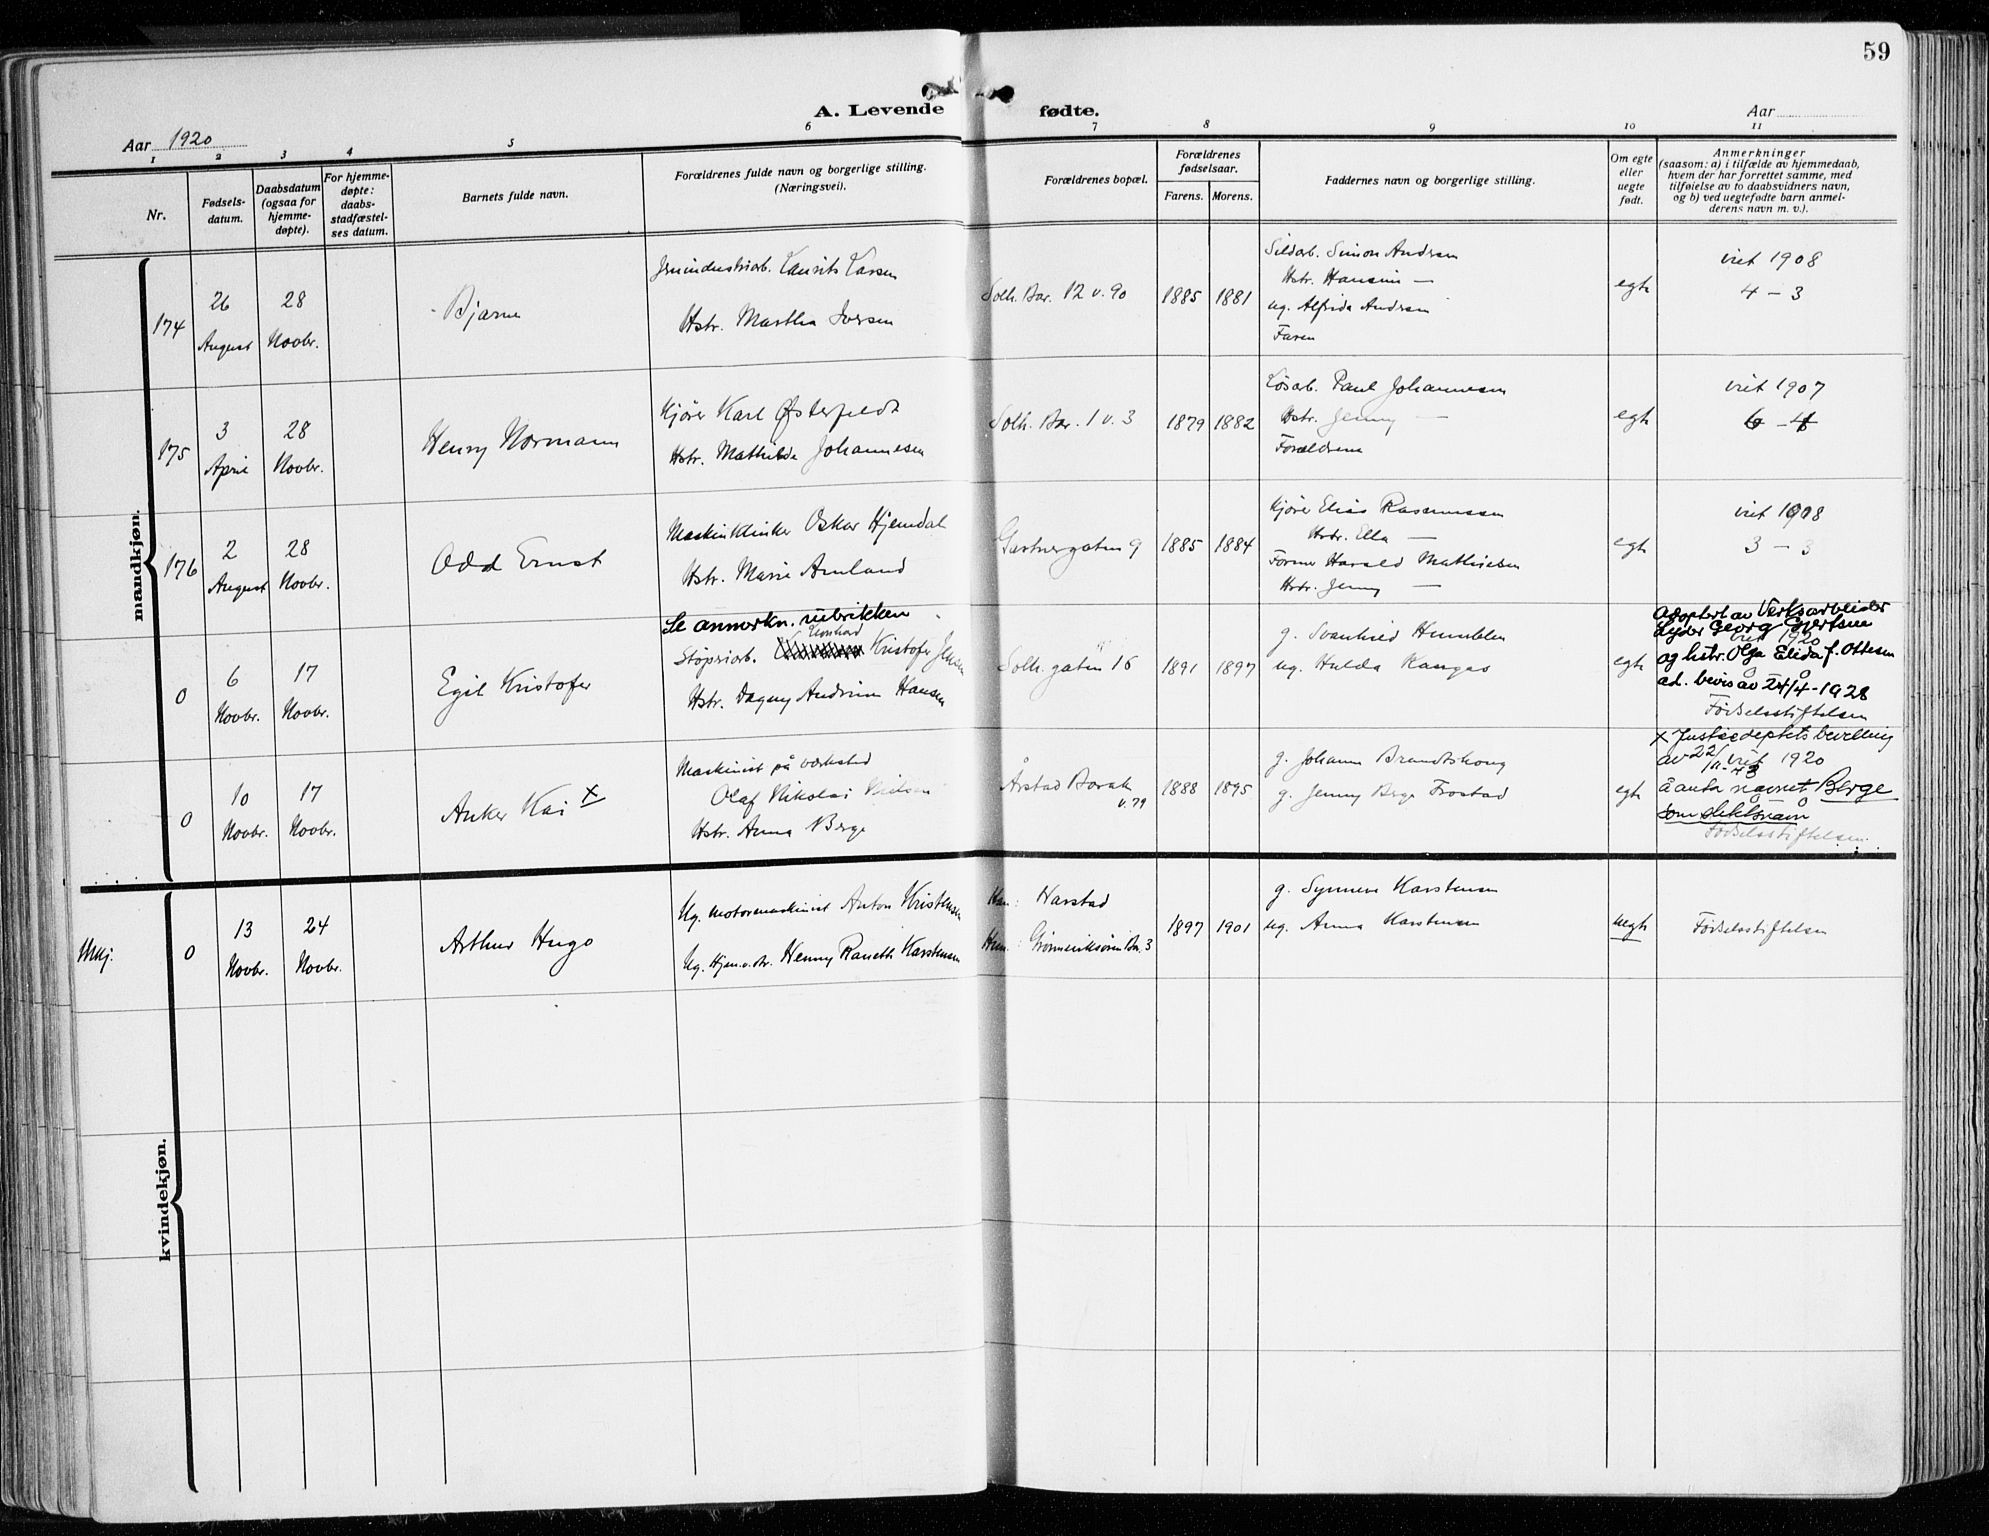 59
A. Levende fødte.
Aar 1920
Aar
1 2 3 4 5 6 7 8 9 10 11
Nr.
Fødsels-
datum.
Daabsdatum
(ogsaa for
hjemme-
døpte).
For hjemme-
døpte:
daabs-
stadfæstel-
ses datum.
Barnets fulde navn.
Forældrenes fulde navn og borgerlige stilling.
(Næringsvei).
Forældrenes bopæl.
Forældrenes
fødselsaar.
Farens. Morens.
Faddernes navn og borgerlige stilling.
Om egte
eller
uegte
født.
Anmerkninger
(saasom: a) i tilfælde av hjemmedaab,
hvem der har forrettet samme, med
tilføielse av to daabsvidners navn,
og b) ved uegtefødte barn anmel-
derens navn m. v.).
mandkjøn.
174
26
August
28
Novbr.
Bjarne
Jernindustriarb. Laurits Larsen
Hstr. Martha Iversen
Solh. Bar. 12 v. 90
1885
1881
Sildarb. Simon Andersen
Hstr. Hansine —
ug. Alfrida Andersen
Faren
egte
viet 1908
4 – 3
175
3
April
28
Novbr.
Henry Normann
Kjører Karl Østerfeldt
Hstr. Mathilde Johannesen
Solh. Bar. 1 v. 3
1879
1882
Løsarb. Paul Johannesen
Hstr. Jenny —
Forældrene
egte
viet 1907
6 – 4
176
2
August
28
Novbr.
Odd Ernst
Maskinklinker Oskar Hjemdal
Hstr. Marie Amland
Gartnergaten 9
1885
1884
Kjører Elias Rasmussen
Hstr. Ella —
Former Harald Mathiesen
Hstr. Jenny —
egte
viet 1908
3 – 3
0
6
Novbr.
17
Novbr.
Egil Kristofer
Se anmerkn. rubrikken
Støperiarb. Kristofer Jensen
Hstr. Dagny Andrine Hansen
Solh. gaten 16
1891
1897
g. Svanhild Humblen
ug. Hulda Kangas
egte
Adoptert av Verksarbeider
Lyder Georg Gjertsen
viet 1920
og hstr. Olga Elida f. Ottesen
ad. bevis av 24/4-1928
Fødselsstiftelsen
0
10
Novbr.
17
Novbr.
Anker Kai X
Maskinist på værksted
Olaf Nikolai Nielsen
Hstr. Anna Berge
Årstad Barak
v. 79
1888
1895
g. Johanne Brandtskong
g. Jenny Berge Frostad
egte
X Justisdeptets bevilling
av 22/11-43
viet 1920
å anta navnet Berge
som slektsnavn
Fødselsstiftelsen
kvindekjøn.
Mkj.
0
13
Novbr.
24
Novbr.
Arthur Hugo
Ug. motormaskinist Anton Kristensen
Ug. Hjem.v.dtr. Henny Ranethe Karstensen
Han: Harstad
Hun: Grønneviksøren Bar. 3
1897
1901
g. Synneve Karstensen
ug. Anna Karstensen
uegte
Fødselsstiftelsen